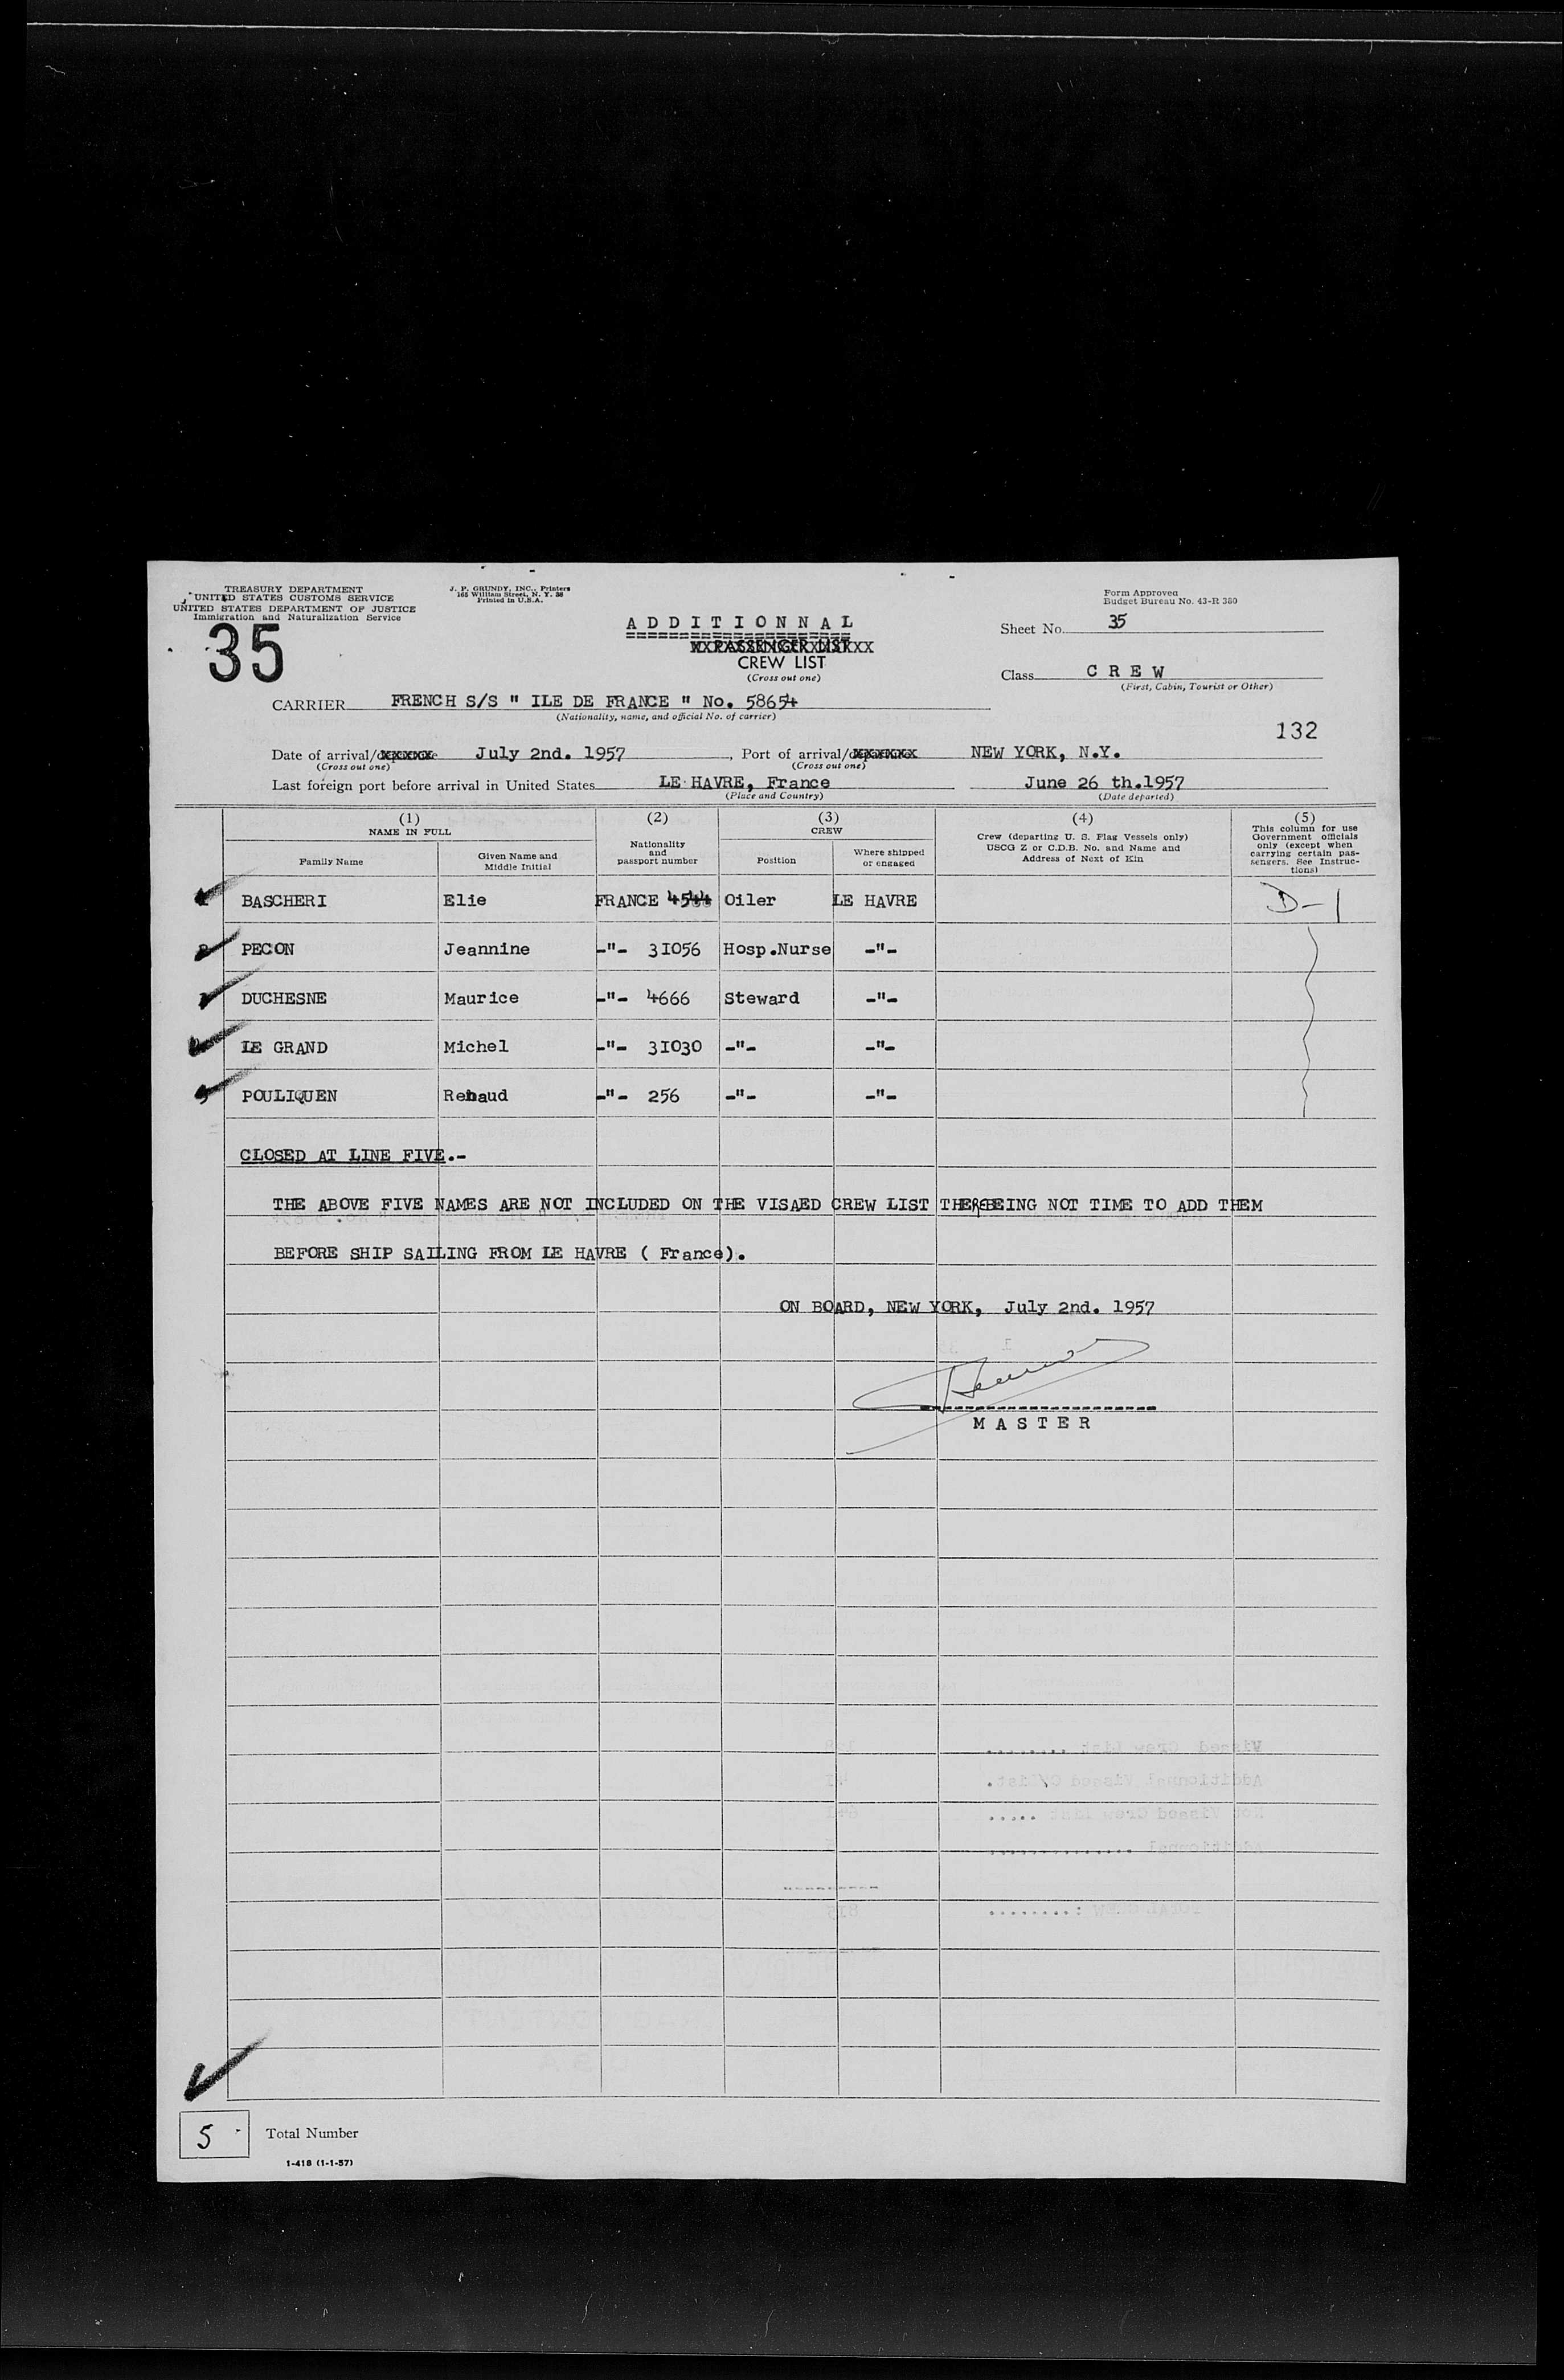 TREASURY DEPARTMENT
UNITED STATES CUSTOMS SERVICE
UNITED STATES DEPARTMENT OF JUSTICE
Immigration and Naturalization Service
J. P. GRUNDY, INC., Printers
165 William Street, N. Y. 38
Printed in U.S.A.
Form Approved
Budget Bureau No. 43-R 380
35
ADDITIONNAL
PASSENGER LIST
CREW LIST
(Cross out one)
Sheet No. 35
Class CREW
(First, Cabin, Tourist or Other)
CARRIER FRENCH S/S " ILE DE FRANCE " No. 5865
(Nationality, name, and official No. of carrier)
132
Date of arrival/ July 2nd. 1957, Port of arrival/ NEW YORK, N.Y.
(Cross out one) (Cross out one)
Last foreign port before arrival in United States LE HAVRE, France June 26 th.1957
(Place and Country) (Date departed)
(1) NAME IN FULL (2) (3) CREW (4) (5)
Family Name Given Name and Middle Initial Nationality and passport number Position Where shipped or engaged Crew (departing U. S. Flag Vessels only) USCG Z or C.D.B. No. and Name and Address of Next of Kin This column for use Government officials only (except when carrying certain passengers. See Instructions)
BASCHERI Elie FRANCE 4544 Oiler LE HAVRE D-1
PECON Jeannine -"- 31056 Hosp.Nurse -"-
DUCHESNE Maurice -"- 4666 Steward -"-
LE GRAND Michel -"- 31030 -"- -"-
POULIQUEN Renaud -"- 256 -"- -"-
CLOSED AT LINE FIVE.-
THE ABOVE FIVE NAMES ARE NOT INCLUDED ON THE VISAED CREW LIST THERE BEING NOT TIME TO ADD THEM
BEFORE SHIP SAILING FROM LE HAVRE ( France).
ON BOARD, NEW YORK, July 2nd. 1957
MASTER
5 Total Number
I-418 (1-1-57)